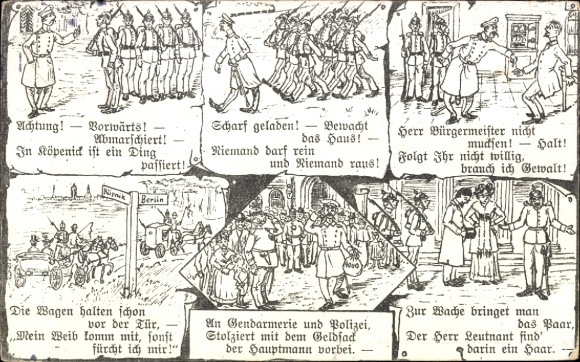 Achtung! — Vorwärts! —
Abmarschiert! —
In Köpenick ist ein Ding
passiert!
Scharf geladen! — Bewacht
das Haus! —
Niemand darf rein
und Niemand raus!
Herr Bürgermeister nicht
mucksen! — Halt!
Folgt Ihr nicht willig,
brauch ich Gewalt!
Köpenick
Berlin
Die Wagen halten schon
vor der Tür, —
„Mein Weib komm mit, sonst
fürcht ich mir!"
An Gendarmerie und Polizei,
Stolziert mit dem Geldsack
der Hauptmann vorbei. —
Zur Wache bringet man
das Paar,
Der Herr Leutnant find'
darin ein Haar. —